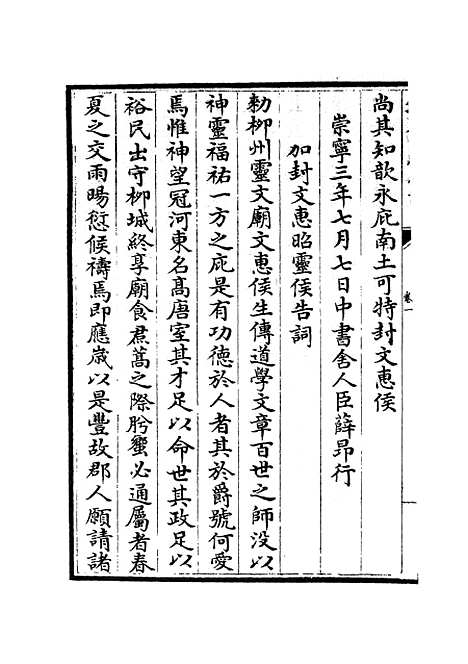 尚其知歆永庇南土可特封文惠侯
崇寧三年七月七日中書舍人臣薛昂行
加封文惠昭靈侯告詞
勅柳州靈文廟文惠侯生傳道學文章百世之師没以
神靈福祐一方之庇是有功德於人者其於爵號何愛
焉惟神望冠河東名髙唐室其才足以命世其政足以
裕民出守柳城終享廟食焄蒿之際肹蠁必通屬者春
夏之交雨暘愆候禱焉即應嵗以是豐故郡人願請諸
卷一